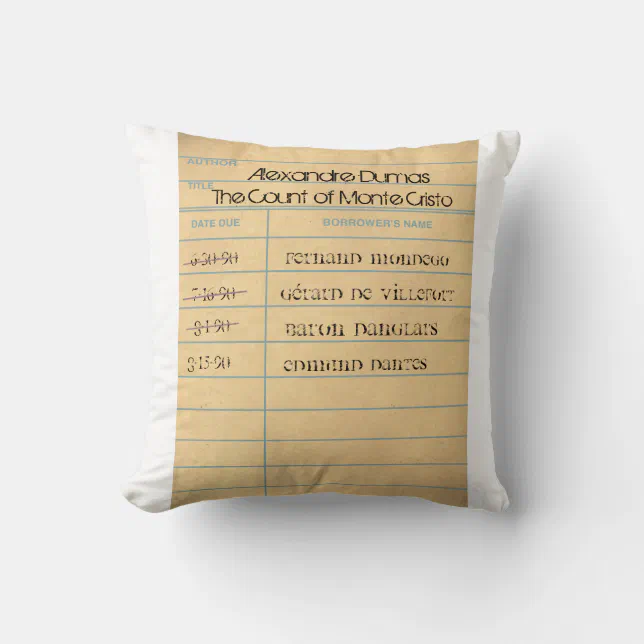 AUTHOR
Alexandre Dumas
TITLE
The Count of Monte Cristo
DATE DUE BORROWER'S NAME
6-30-90 Fernand Mondego
7-16-90 Gérard de Villefort
8-1-90 Baron Danglars
8-15-90 Edmund Dantes